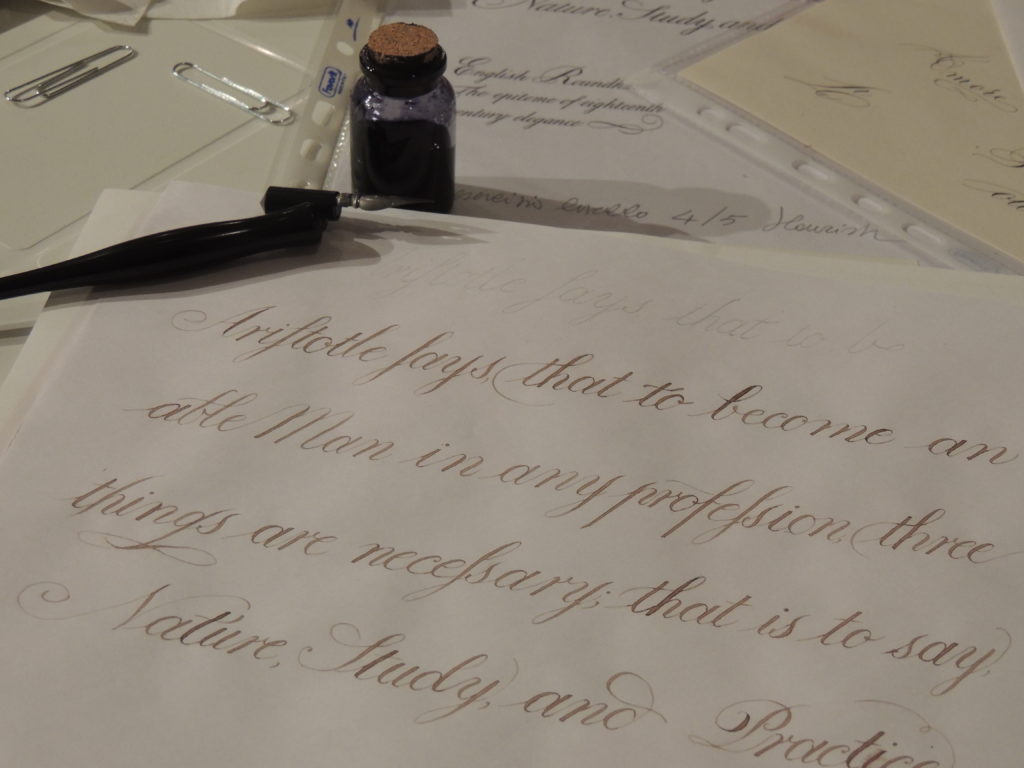 Nature, Study and
English Roundh
The epitome of eighteenth
entury elegance
anello 4/5 flourish
Ariſtotle ſays that to be
Ariſtotle ſays, that to become an
able Man in any profeſsion, three
things are neceſsary; that is to say,
Nature, Study, and Practice